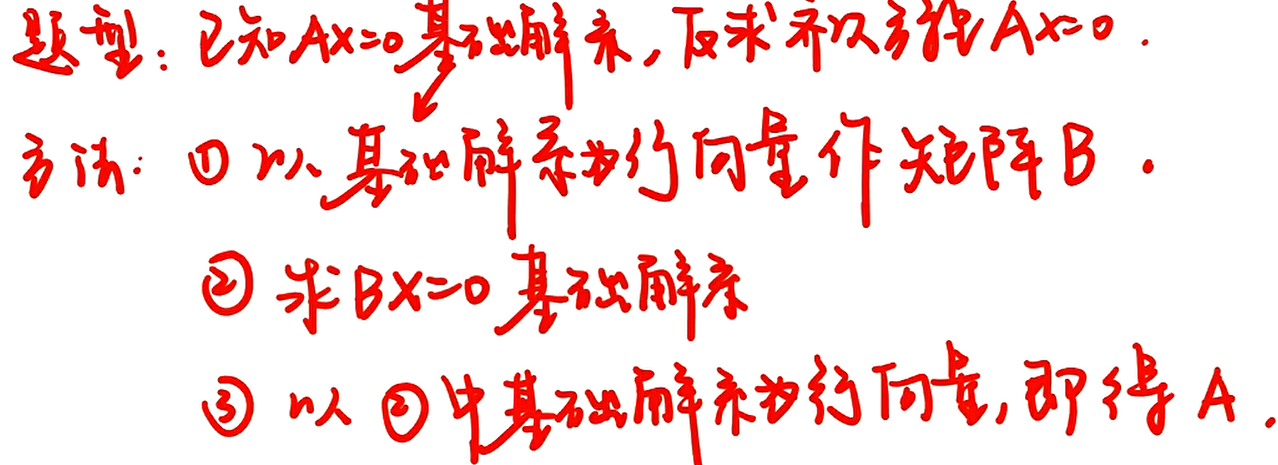 题型：已知Ax=0基础解系，反求齐次方程Ax=0.
方法：①以基础解系为行向量作矩阵B.
②求Bx=0基础解系
③以②中基础解系为行向量，即得A.